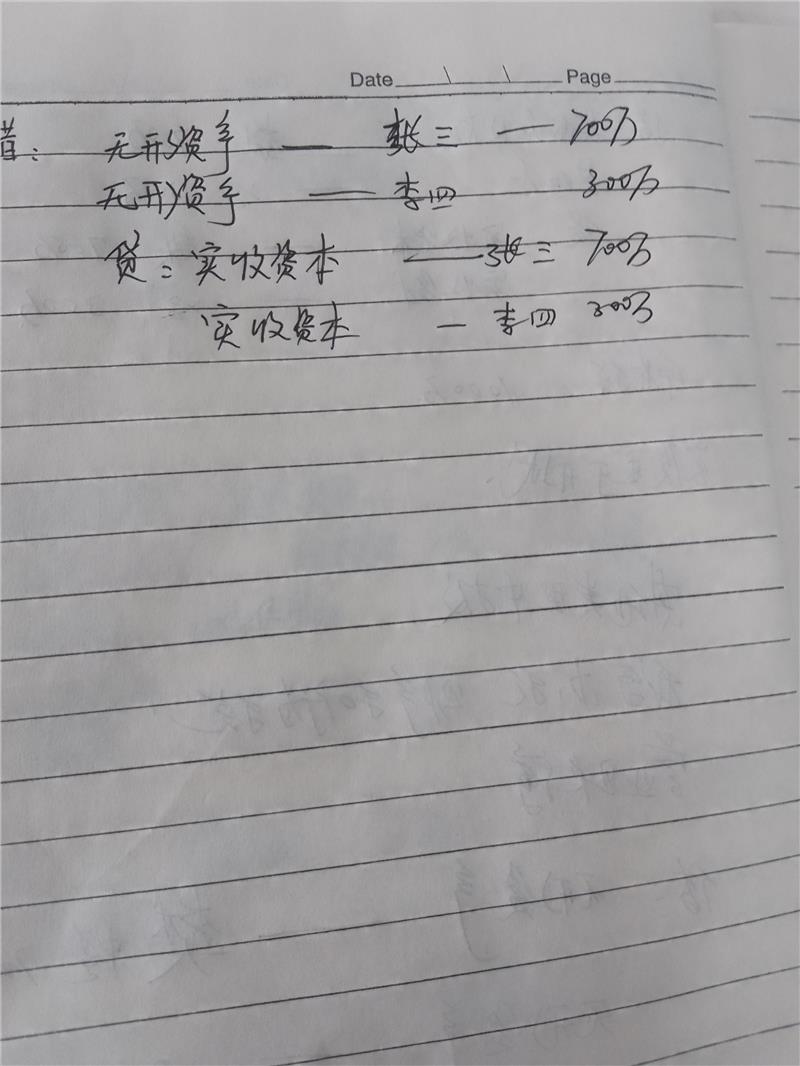 Date Page
借： 无形资产 — 张三 — 700万
无形资产 — 李四 300万
贷：实收资本 — 张三 700万
实收资本 — 李四 300万